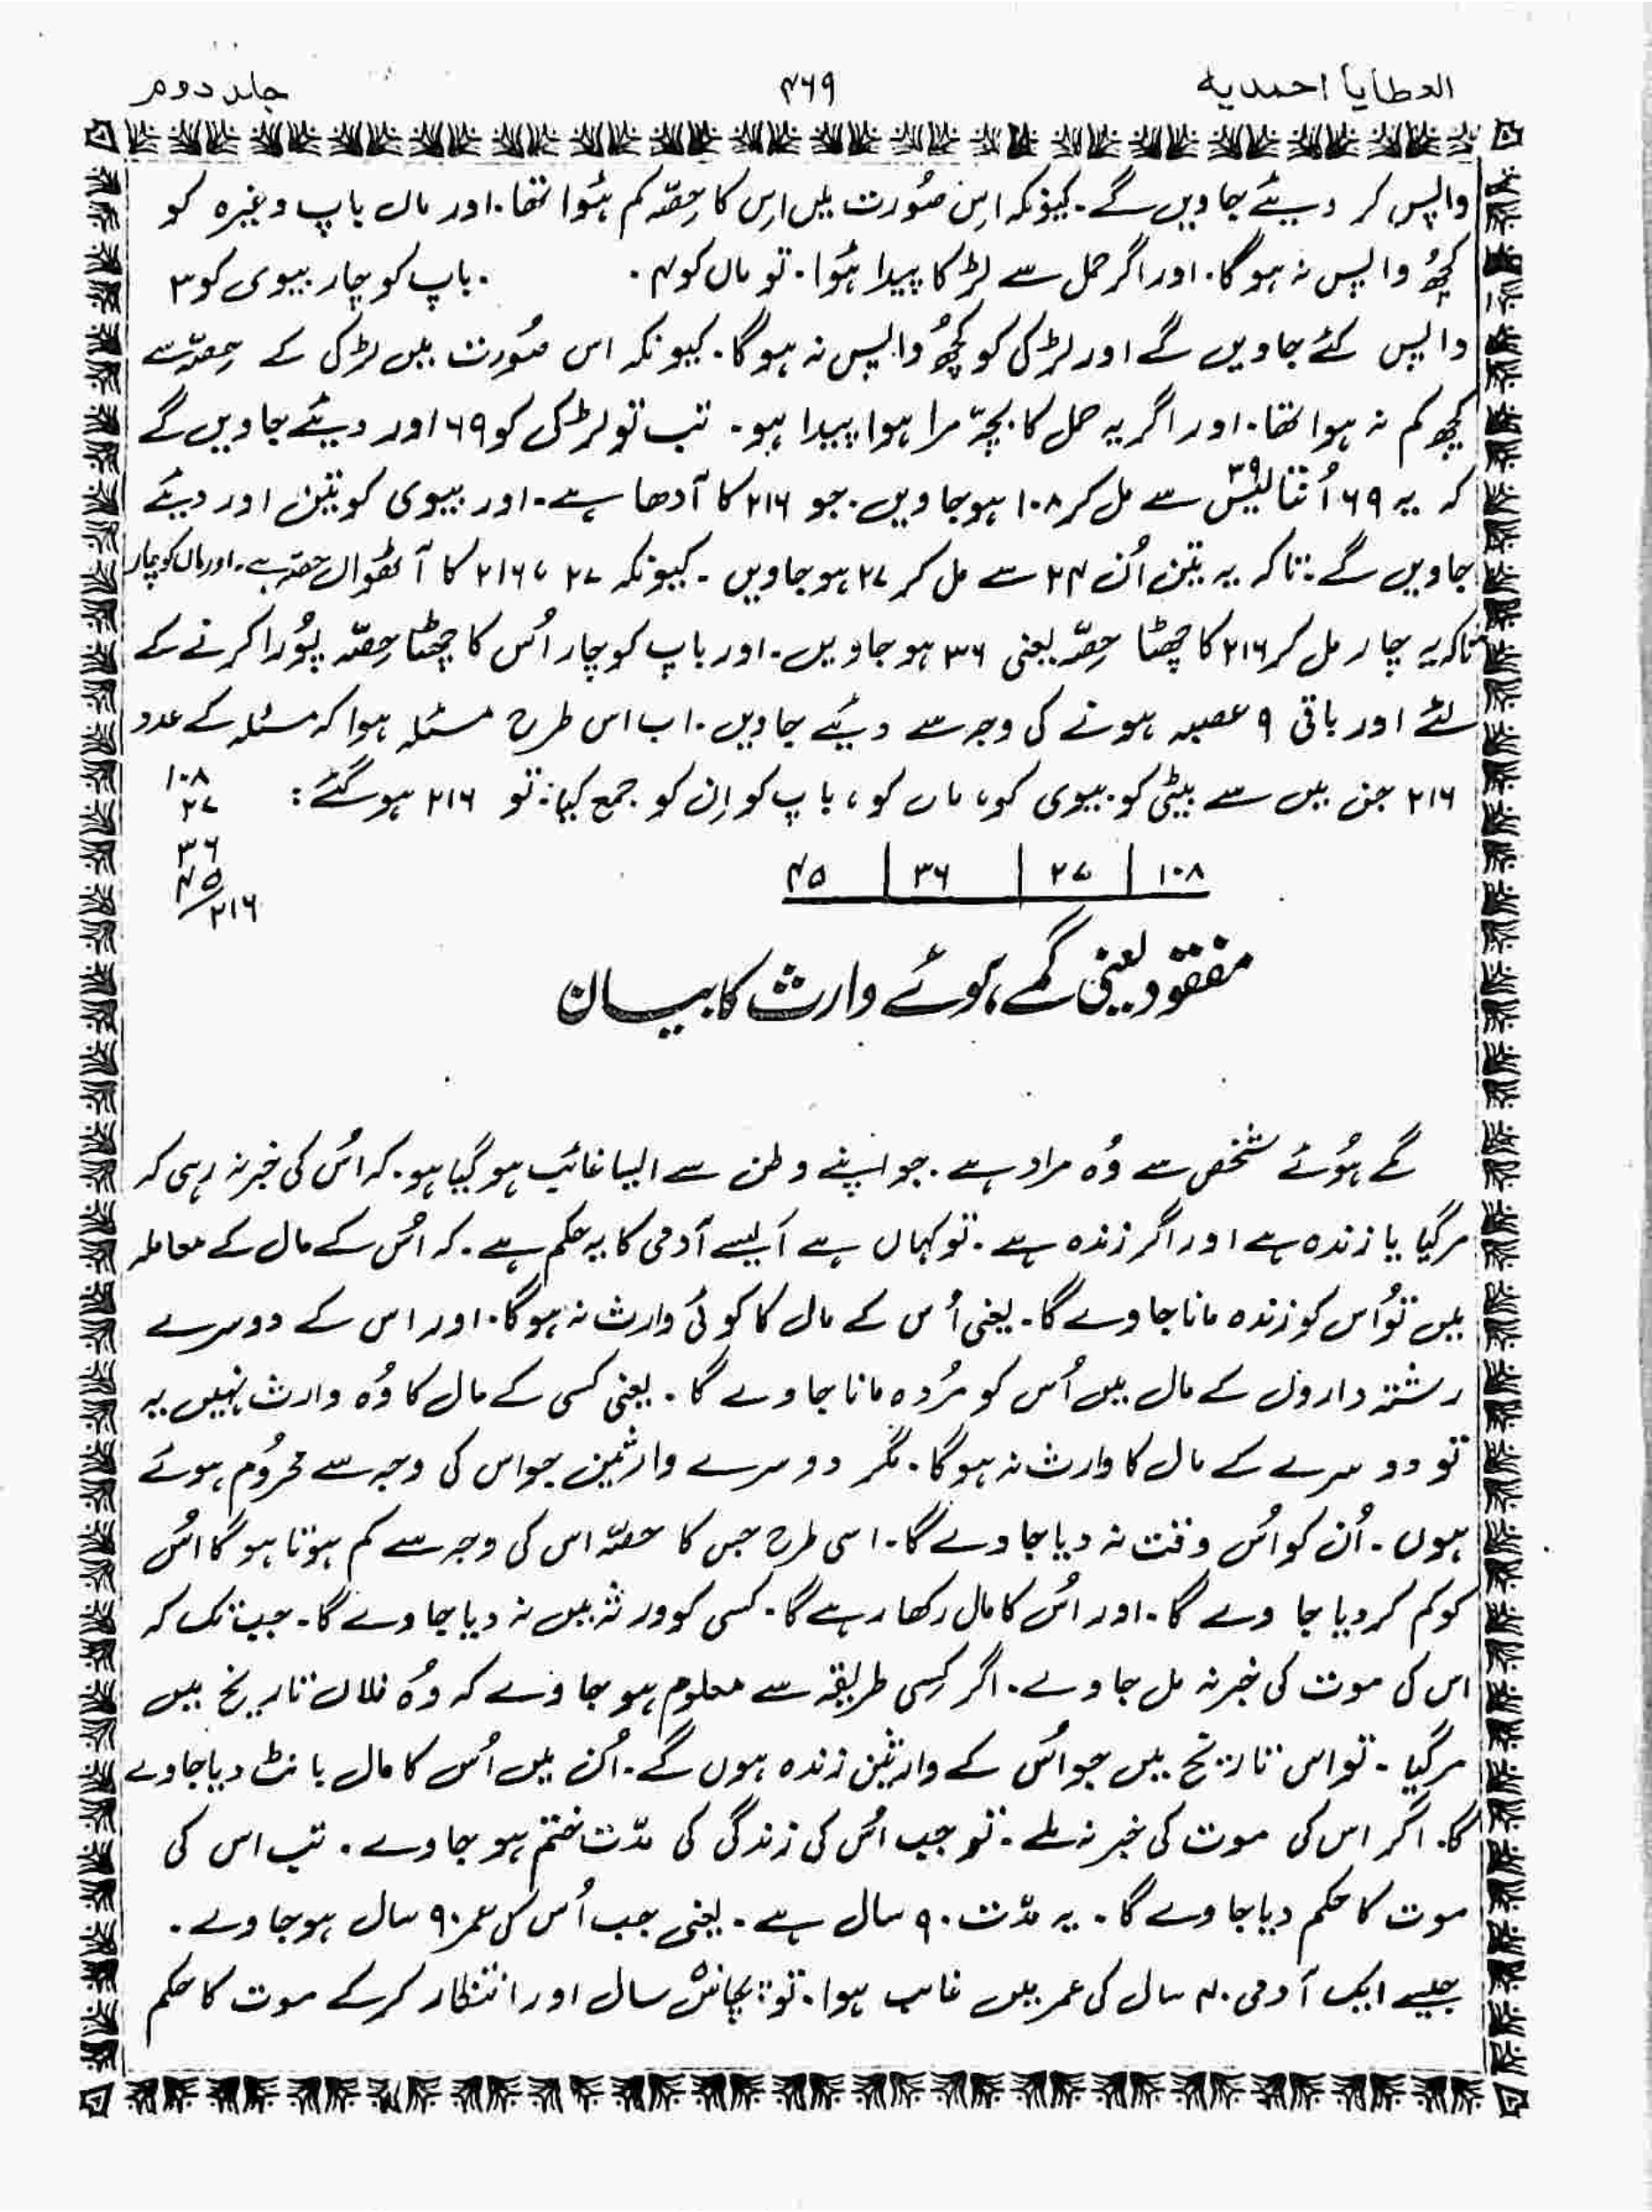 العطایا احمدیه
۴۶۹
جلد دوم
واپس کر دیئے جاویں گے۔ کیونکہ اس صُورت میں اِس کا حِصّہ کم ہُوا تھا۔ اور ماں باپ وغیرہ کو
کچھُ واپس نہ ہوگا۔ اور اگر حمل سے لڑکا پیدا ہُوا۔ تو ماں کو ۴۔ ۔ باپ کو چار بیوی کو ۳
واپس کئے جاویں گے اور لڑکی کو کچھُ واپس نہ ہوگا۔ کیونکہ اس صُورت میں لڑکی کے حِصّہ سے
کچھ کم نہ ہوا تھا۔ اور اگر یہ حمل کا بچّہ مرا ہوا پیدا ہو۔ تب تو لڑکی کو ۶۹ اور دیئے جاویں گے
کہ یہ ۶۹ اُنتالیس ۳۹ سے مل کر ۱۰۸ ہو جاویں۔ جو ۲۱۶ کا آدھا ہے۔ اور بیوی کو تین اور دیئے
جاویں گے: تاکہ یہ تین اُن ۲۴ سے مل کر ۲۷ ہو جاویں ۔ کیونکہ ۲۷، ۲۱۶ کا آٹھواں حصّہ ہے۔ اور ماں کو چار
تاکہ یہ چار مل کر ۲۱۶ کا چھٹا حِصّہ یعنی ۳۶ ہو جاویں۔ اور باپ کو چار اُس کا چھٹا حِصّہ پُورا کرنے کے
لئے اور باقی ۹ عصبہ ہونے کی وجہ سے دیئے جاویں۔ اب اس طرح مسئلہ ہوا کہ مسئلہ کے عدد
۲۱۶ جن میں سے بیٹی کو بیوی کو، ماں کو، باپ کو اِن کو جمع کیا: تو ۲۱۶ ہو گئے:
۱۰۸
۲۷
۳۶
۴۵
۲۱۶
۱۰۸ | ۲۷ | ۳۶ | ۴۵
مفقود یعنی گمے ہُوئے وارث کا بیان
گمے ہُوئے شخص سے وُہ مراد ہے ۔ جو اپنے وطن سے ایسا غائب ہو گیا ہو۔ کہ اُس کی خبر نہ رہی کہ
مر گیا یا زندہ ہے اور اگر زندہ ہے ۔ تو کہاں ہے اَیسے آدمی کا یہ حکم ہے ۔ کہ اُس کے مال کے معاملہ
میں تو اُس کو زندہ مانا جاوے گا۔ یعنی اُس کے مال کا کوئی وارث نہ ہوگا۔ اور اس کے دوسرے
رشتہ داروں کے مال میں اُس کو مُردہ مانا جاوے گا ۔ یعنی کسی کے مال کا وُہ وارث نہیں یہ
تو دوسرے کے مال کا وارث نہ ہوگا۔ مگر دوسرے وارثین جو اس کی وجہ سے محرُوم ہوئے
ہوں ۔ اُن کو اُس وقت نہ دیا جاوے گا۔ اسی طرح جس کا حصّہ اس کی وجہ سے کم ہوتا ہوگا اُس
کو کم کر دیا جا وے گا۔ اور اُس کا مال رکھا رہے گا۔ کسی کو ورثہ میں نہ دیا جاوے گا۔ جب تک کہ
اس کی موت کی خبر نہ مل جاوے۔ اگر کِسی طریقہ سے معلوم ہو جاوے کہ وُہ فلاں تاریخ میں
مر گیا ۔ تو اس تاریخ میں جو اُس کے وارثین زندہ ہوں گے۔ اُن میں اُس کا مال بانٹ دیا جاوے
گا۔ اگر اس کی موت کی خبر نہ ملے ۔ تو جب اُس کی زندگی کی مدّت ختم ہو جاوے ۔ تب اس کی
موت کا حکم دیا جاوے گا ۔ یہ مدّت ۹۰ سال ہے ۔ یعنی جب اُس کی عمر ۹۰ سال ہو جاوے ۔
جیسے ایک آدمی ۴۰ سال کی عمر میں غائب ہوا۔ تو: پچاس ۵۰ سال اور انتظار کر کے موت کا حکم